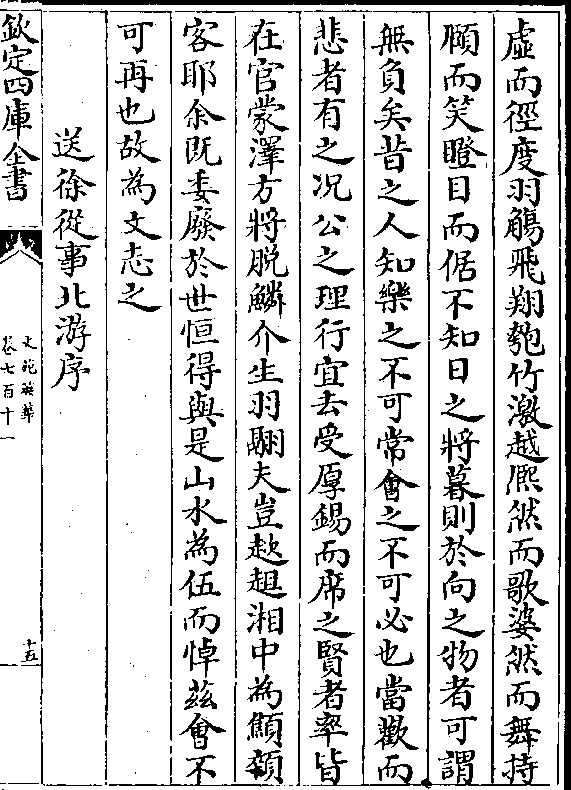 虛而徑度羽觴飛翔匏竹激越熈然而歌婆然而舞持
頤而笑瞪目而倨不知日之將暮則於向之物者可謂
無負矣昔之人知樂之不可常會之不可必也當歡而
悲者有之况公之理行宜去受厚錫而席之賢者率皆
在官蒙澤方將脫鱗介生羽翮夫豈趑趄湘中為顦顇
客耶余既委廢於世恒得與是山水為伍而悼兹會不
可再也故為文志之
送徐從事北游序
欽定四庫全書
文苑英華
卷七百十一
十五